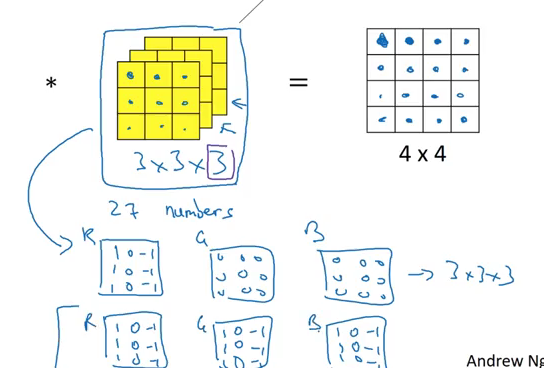 * =
3x3x3
4 x 4
27 numbers
R G B
1 0 -1 0 0 0 0 0 0
1 0 -1 0 0 0 0 0 0
1 0 -1 0 0 0 0 0 0
→ 3x3x3
R G B
1 0 -1 1 0 -1 1 0 -1
1 0 -1 1 0 -1 1 0 -1
1 0 -1 1 0 -1
Andrew Ng